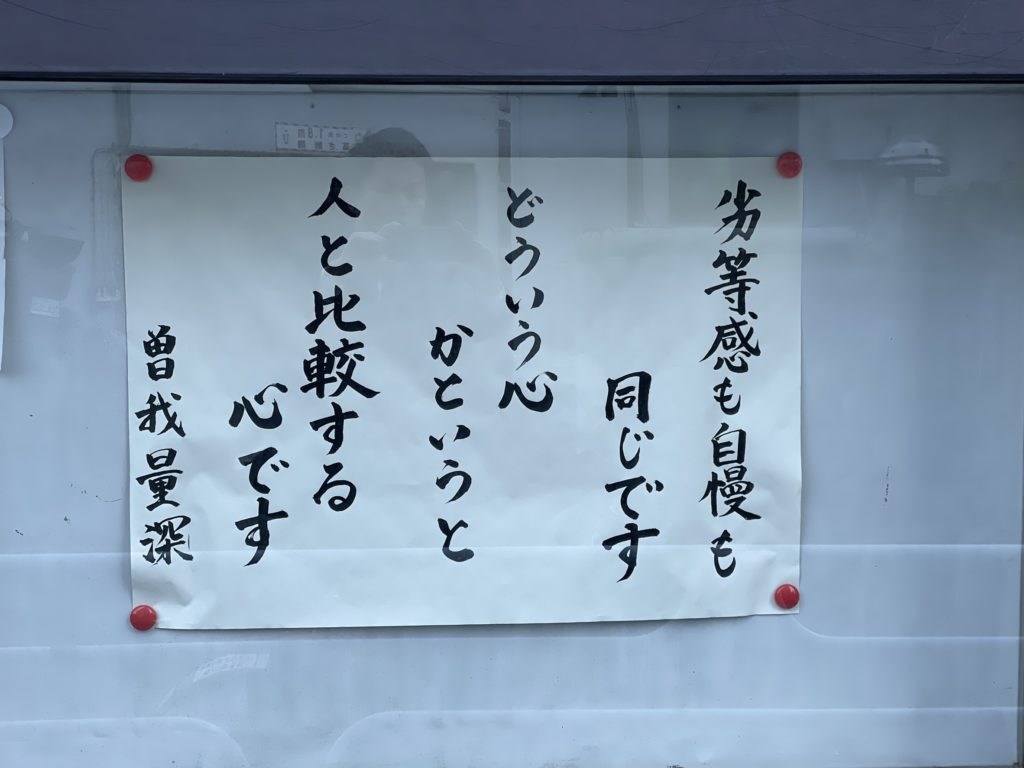 劣等感も自慢も
同じです
どういう心
かというと
人と比較する
心です
曽我量深